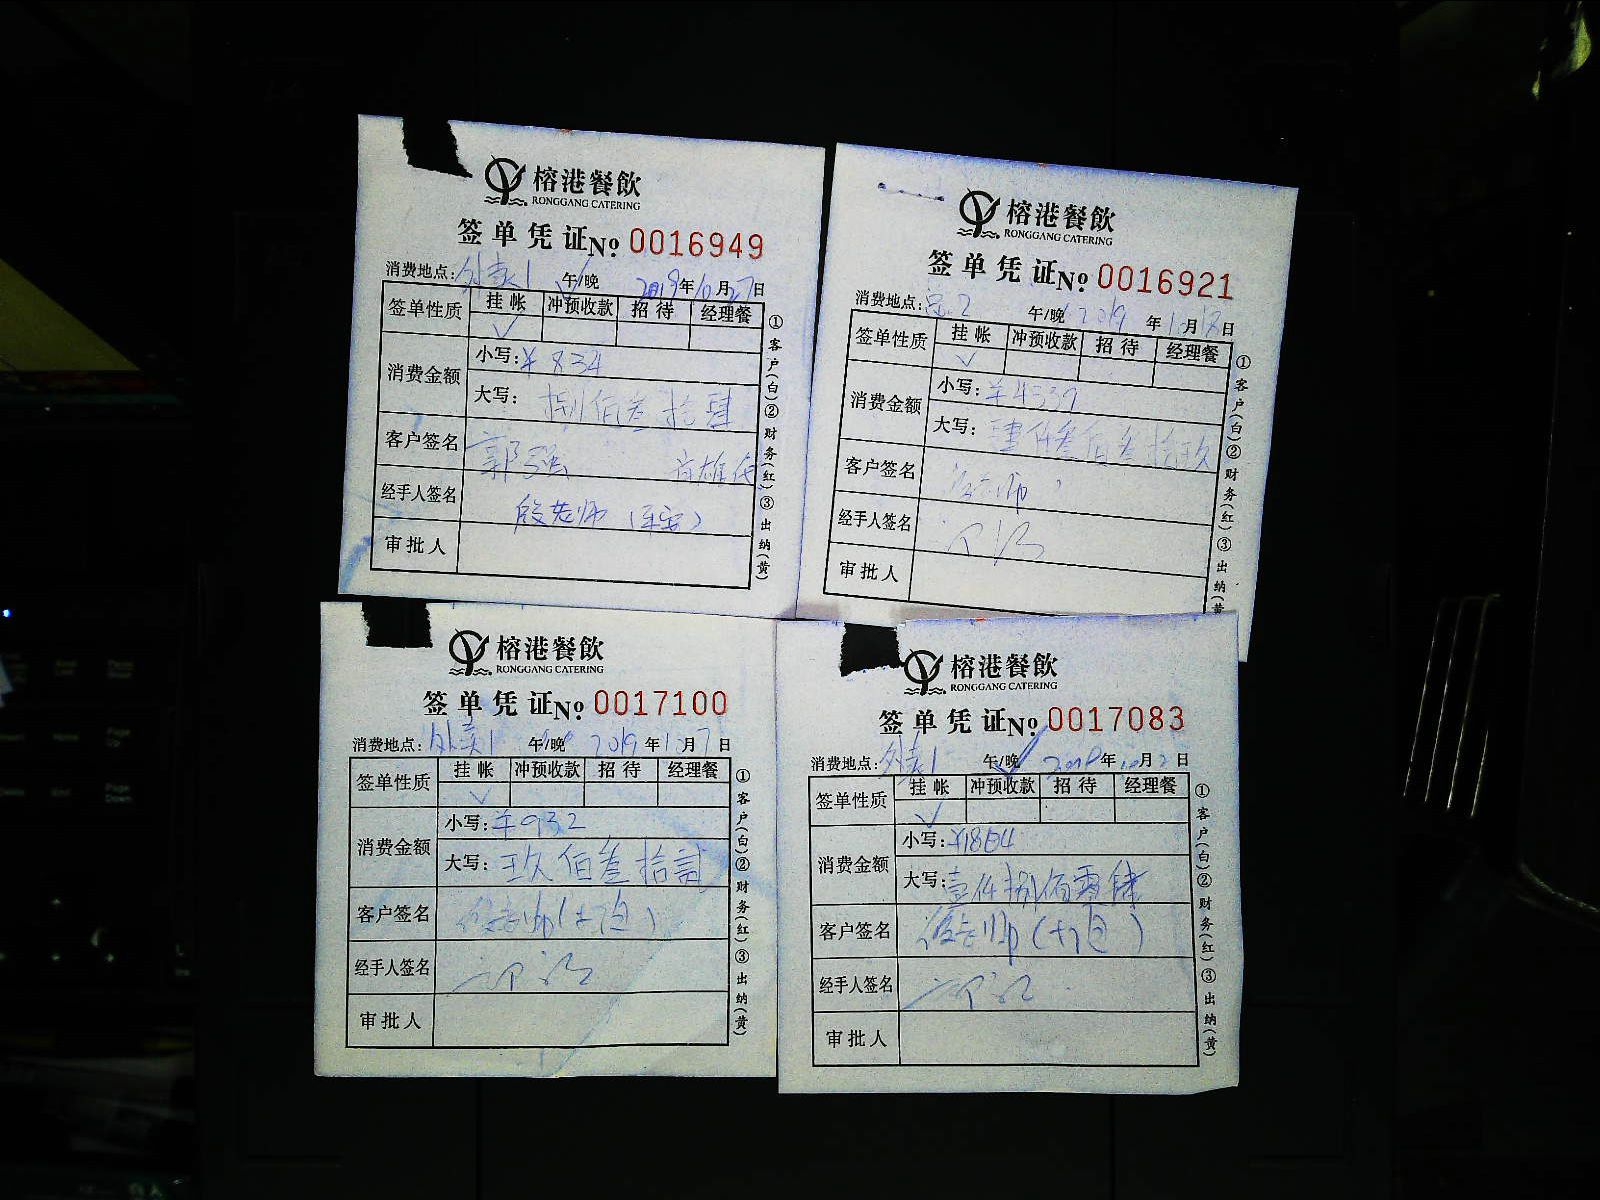 榕港餐飲
RONGGANG CATERING
签单凭证 No 0016949
消费地点: 外卖1 午/晚 2019年10月27日
签单性质 挂帐 冲预收款 招待 经理餐
消费金额 小写: ¥834
大写: 捌佰叁拾肆
客户签名 郭强
经手人签名 殷老师
审批人
①客户(白)②财务(红)③出纳(黄)
榕港餐飲
RONGGANG CATERING
签单凭证 No 0016921
消费地点: 午/晚 2019年 月18日
签单性质 挂帐 冲预收款 招待 经理餐
消费金额 小写: ¥4339
大写: 肆仟叁佰叁拾玖
客户签名
经手人签名
审批人
①客户(白)②财务(红)③出纳(黄
榕港餐飲
RONGGANG CATERING
签单凭证 No 0017100
消费地点: 外卖1 午/晚 2019年 月7日
签单性质 挂帐 冲预收款 招待 经理餐
消费金额 小写: ¥932
大写: 玖佰叁拾贰
客户签名
经手人签名
审批人
①客户(白)②财务(红)③出纳(黄)
榕港餐飲
RONGGANG CATERING
签单凭证 No 0017083
消费地点: 外卖1 午/晚 年10月2日
签单性质 挂帐 冲预收款 招待 经理餐
消费金额 小写: ¥1804
大写: 壹仟捌佰零肆
客户签名
经手人签名
审批人
①客户(白)②财务(红)③出纳(黄)